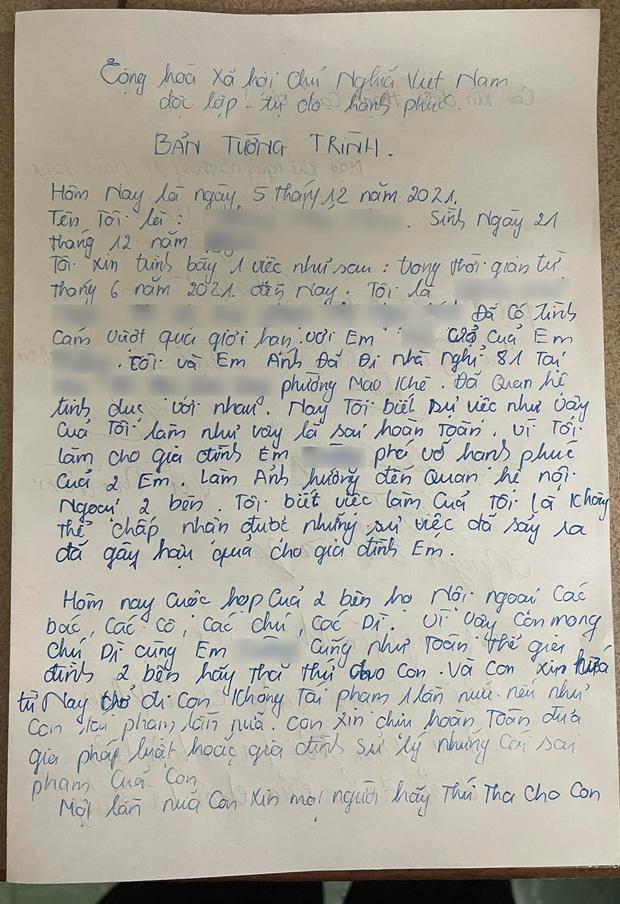 Cộng hoà xã hội chủ Nghĩa Việt Nam
độc lập - tự do - hạnh phúc.
BẢN TƯỜNG TRÌNH.
Hôm Nay là ngày 5 tháng 12 năm 2021.
Tên Tôi là : . Sinh Ngày 21
tháng 12 năm
Tôi xin trình bầy 1 việc như sau : trong thời gian từ
tháng 6 năm 2021. đến Nay. Tôi là
Đã Có tình
Cảm vượt quá giới hạn với Em Của Em
. tôi và Em Ánh Đã Đi nhà nghỉ 81 Tại
phường Mạo Khê. Đã Quan hệ
tình dục với nhau. Nay Tôi biết sự việc như vậy
Của Tôi làm như vậy là sai hoàn Toàn. Vì Tôi
làm cho gia đình Em phá vỡ hạnh phúc
Của 2 Em. Làm Ảnh hưởng đến Quan hệ nội
Ngoại 2 bên. Tôi biết việc làm Của Tôi là Không
thể chấp nhận được nhưng sự việc đã sảy ra
đã gây hậu quả cho gia đình Em.
Hôm nay Cuộc họp Của 2 bên họ Nội ngoại Các
bác, Các Cô, Các chú, Các Dì. Vì vậy Con mong
chú Dì cùng Em Cũng như Toàn thể gia
đình 2 bên hãy Tha thứ cho Con. Và Con xin hứa
từ Nay trở đi Con Không Tái phạm 1 lần nữa. nếu như
Con tái phạm lần nữa. Con xin chịu hoàn Toàn đưa
gia pháp luật hoặc gia đình sử lý những Cái sai
phạm Của Con
Một lần nữa Con xin mọi người hãy Thứ Tha Cho Con